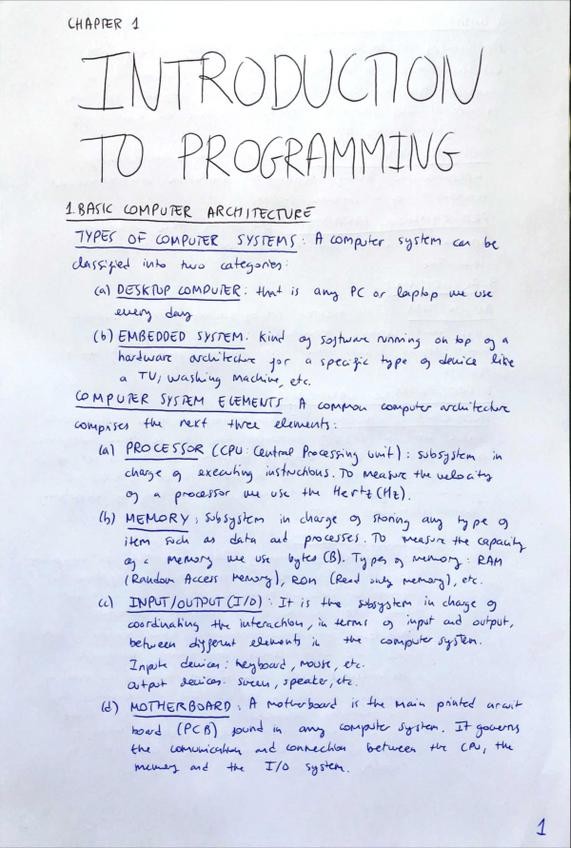 CHAPTER 1
INTRODUCTION
TO PROGRAMMING
1. BASIC COMPUTER ARCHITECTURE
TYPES OF COMPUTER SYSTEMS: A computer system can be
classified into two categories:
(a) DESKTOP COMPUTER: that is any PC or laptop we use
every day
(b) EMBEDDED SYSTEM: kind of software running on top of a
hardware architecture for a specific type of device like
a TV, washing machine, etc.
COMPUTER SYSTEM ELEMENTS: A common computer architecture
comprises the next three elements:
(a) PROCESSOR (CPU: Central Processing Unit): subsystem in
charge of executing instructions. To measure the velocity
of a processor we use the Hertz (Hz).
(b) MEMORY: subsystem in charge of storing any type of
item such as data and processes. To measure the capacity
of a memory we use bytes (B). Types of memory: RAM
(Random Access Memory), ROM (Read only memory), etc.
(c) INPUT/OUTPUT (I/O): It is the subsystem in charge of
coordinating the interaction, in terms of input and output,
between different elements in the computer system.
Input devices: keyboard, mouse, etc.
Output devices: screen, speaker, etc.
(d) MOTHERBOARD: A motherboard is the main printed circuit
board (PCB) found in any computer system. It governs
the comunication and connection between the CPU, the
memory and the I/O system.
1